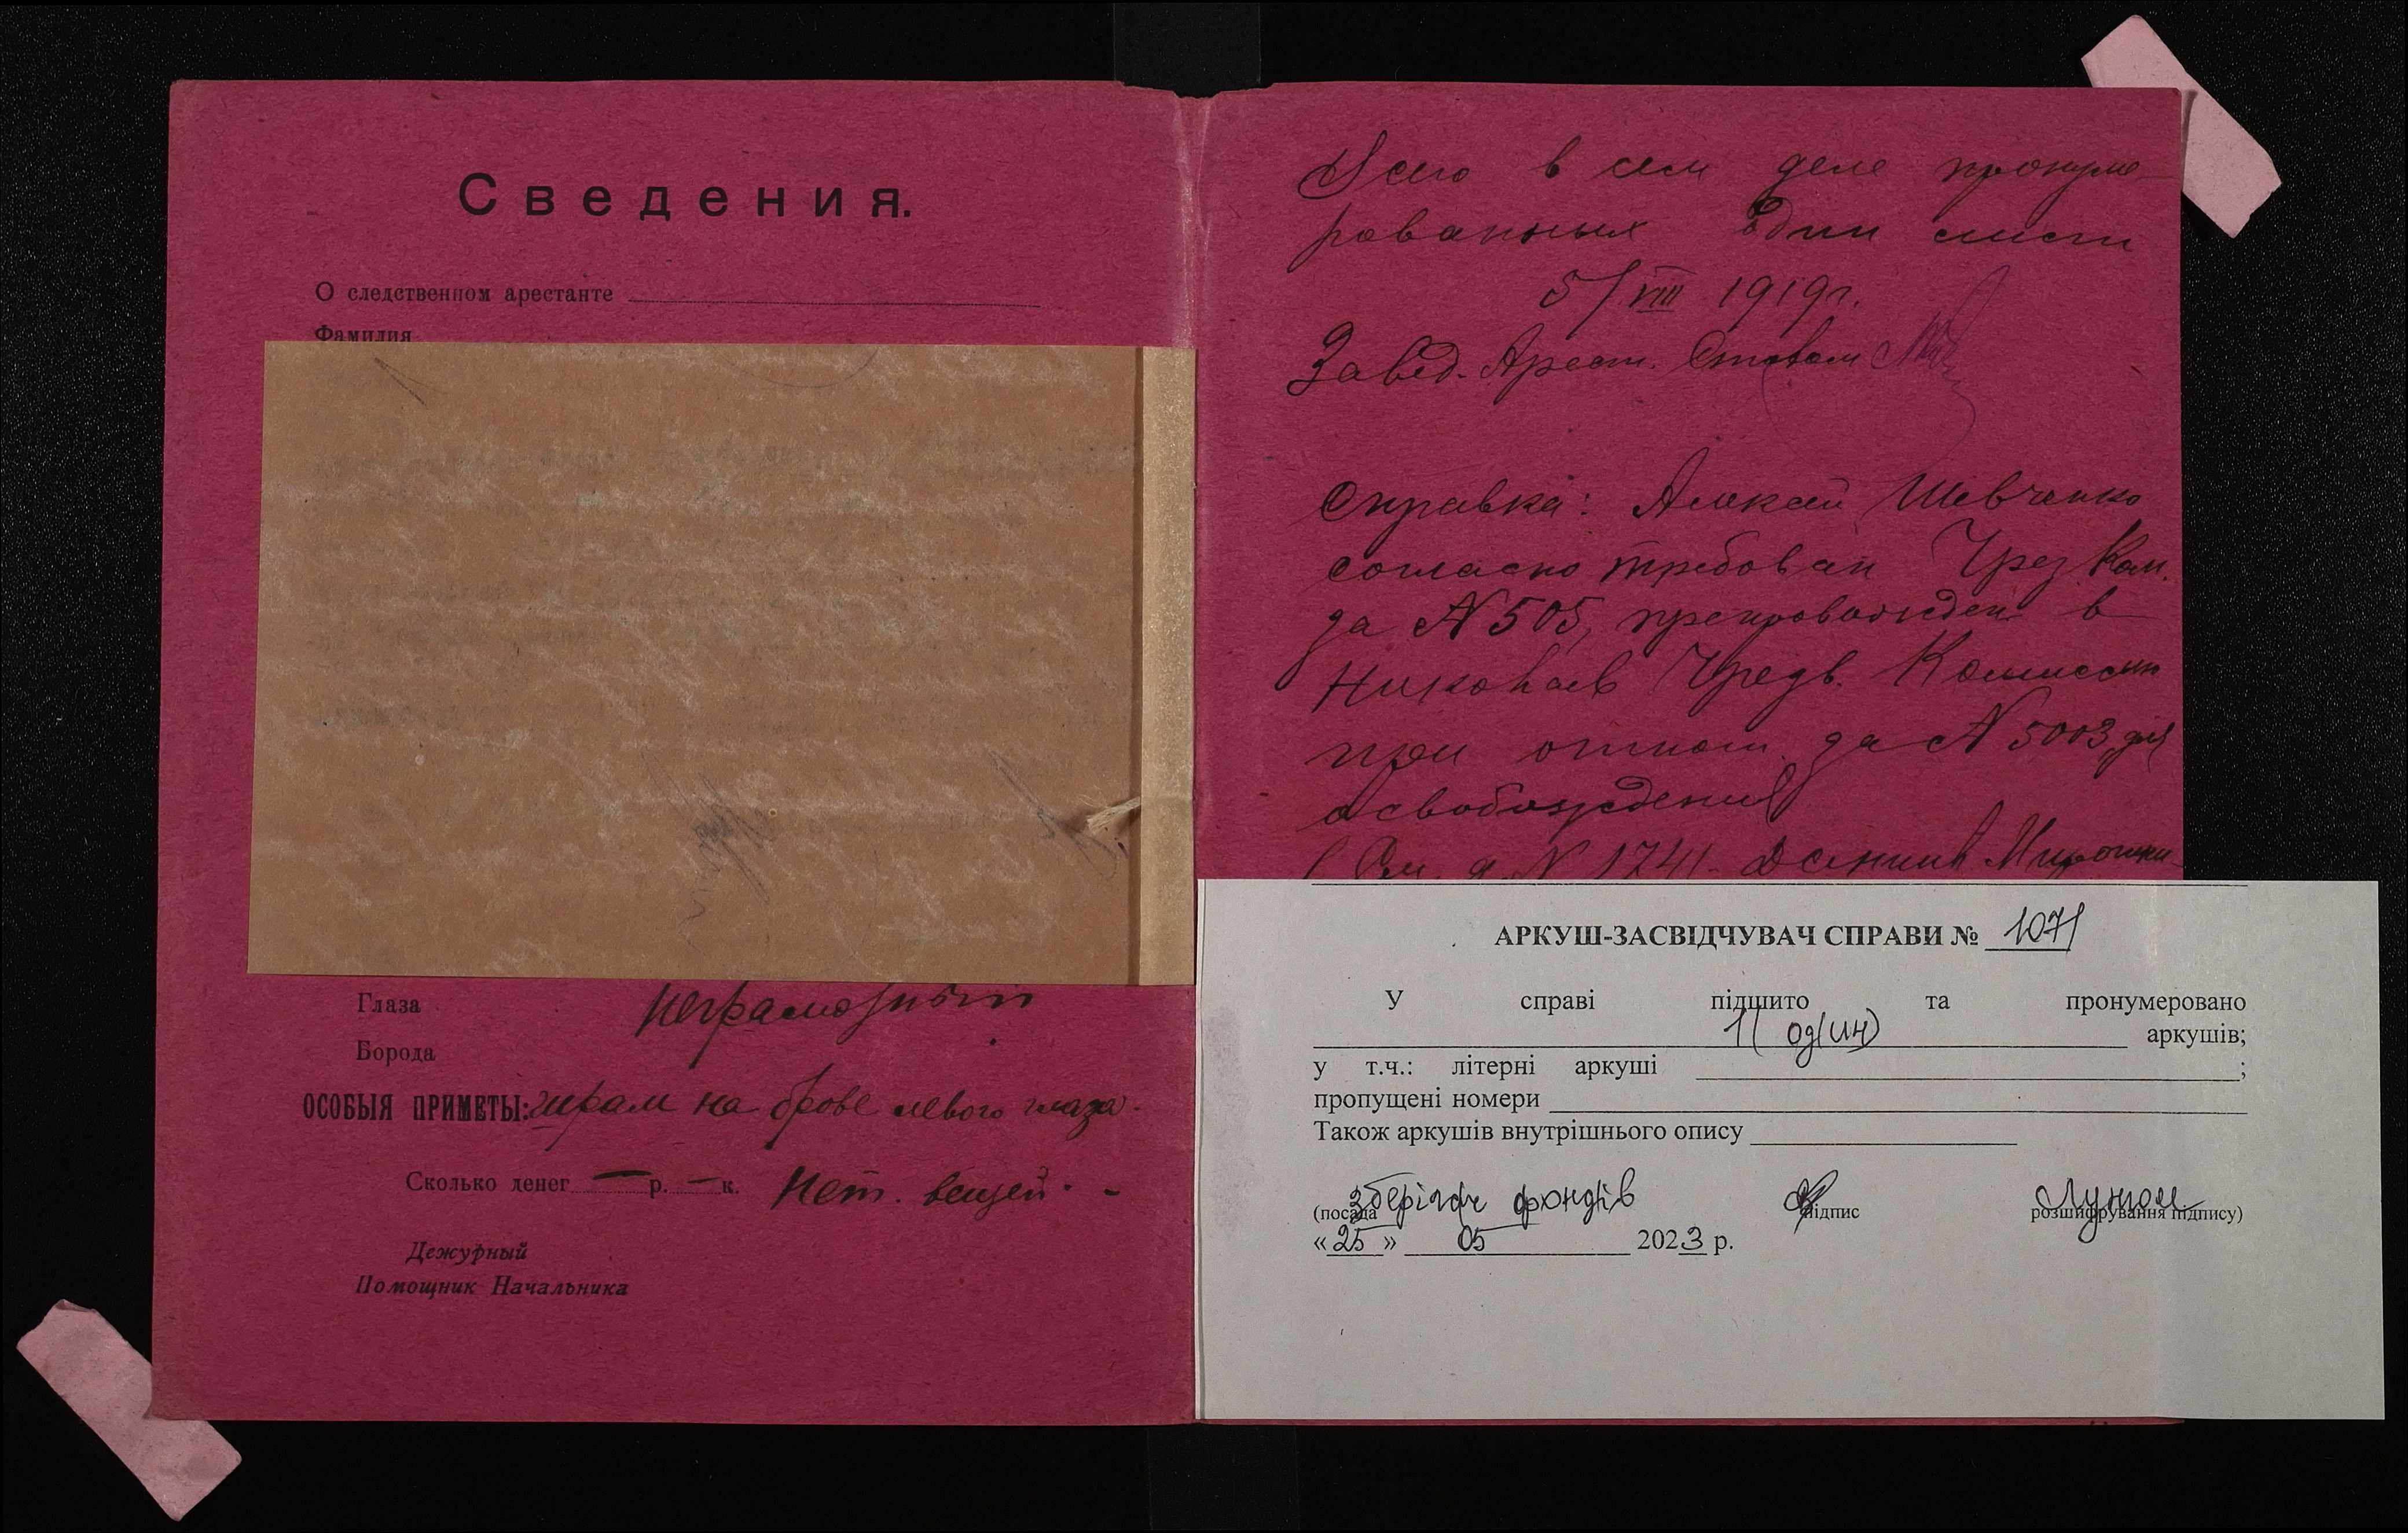 Сведения.
О следственном арестанте
Фамилия
Глаза
неграмотный
Борода
ОСОБЫЯ ПРИМЕТЫ: шрам на брове левого глаза.
Сколько денег — р. — к. Нет. вещей. -
Дежурный
Помощник Начальника
Всего в сем деле пронуме-
рованных один лист
5/VIII 1919г.
Завед. Арест. Столом
Справка: Алексей Шевченко
согласно требован Чрез. Ком.
за № 505, препровожден в
Николаев Чрезв. Комиссию
при отнош. за № 5003 для
освобождения
(См. д. № 1741
АРКУШ-ЗАСВІДЧУВАЧ СПРАВИ № 1071
У справі підшито та пронумеровано
1 (один) аркушів;
у т.ч.: літерні аркуші ;
пропущені номери
Також аркушів внутрішнього опису
Зберігач фондів
(посада підпис розшифрування підпису)
«25» 05 2023 р.